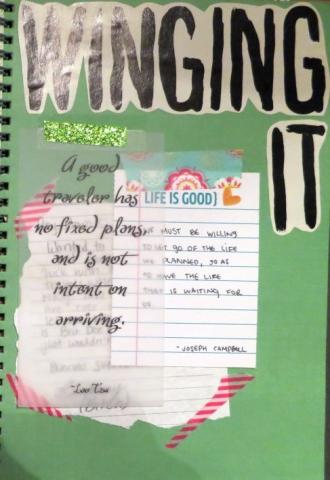 WINGING
IT
A good
traveler has
no fixed plans
and is not
intent on
arriving.
~Lao Tzu
LIFE IS GOOD}
WE MUST BE WILLING
TO LET GO OF THE LIFE
WE PLANNED, SO AS
TO HAVE THE LIFE
THAT IS WAITING FOR
US.
- JOSEPH CAMPBELL
Wanted to